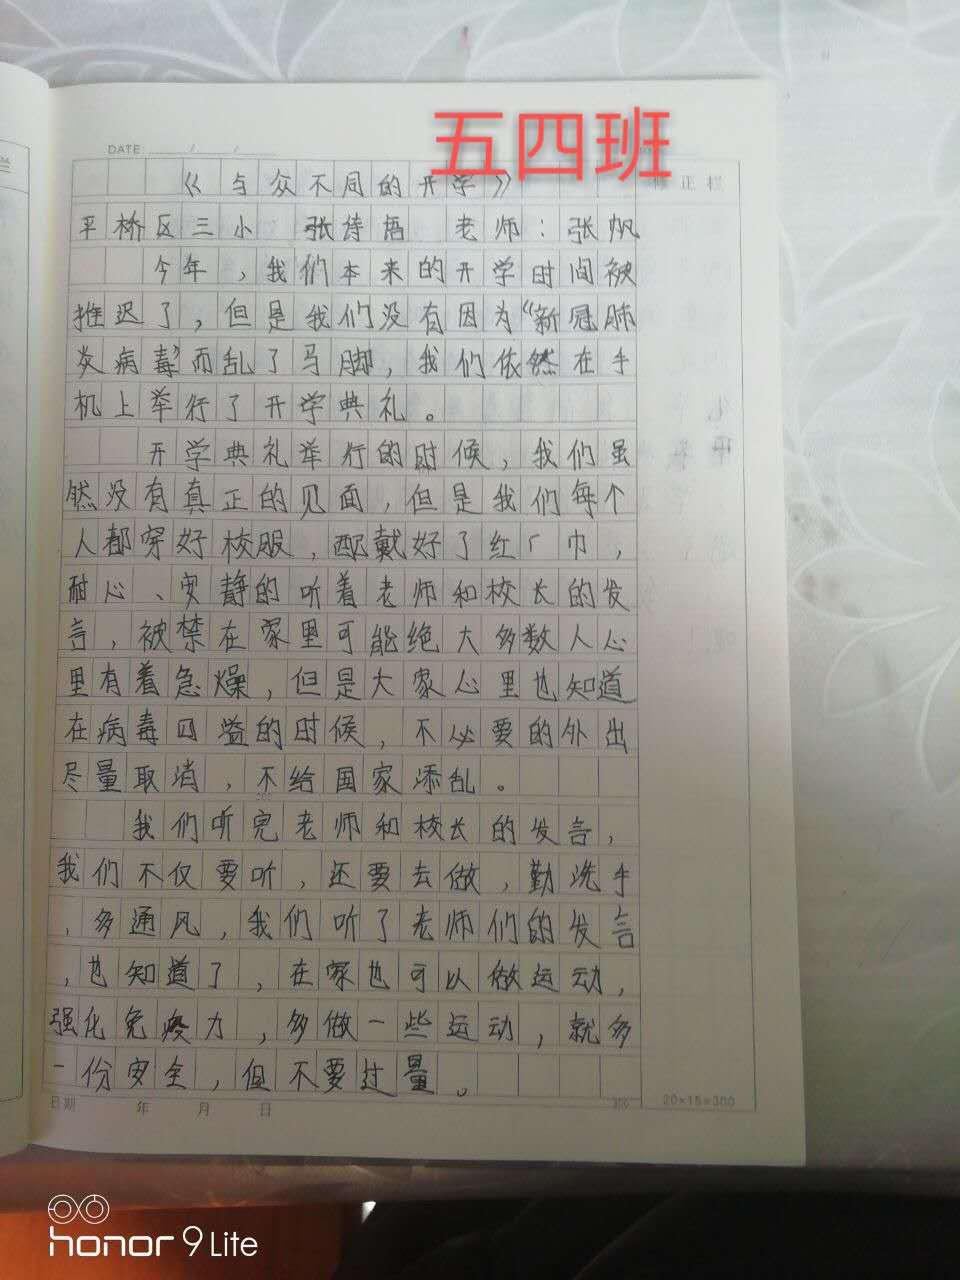 五四班
DATE / /
《与众不同的开学》
修正栏
平桥区三小 张诗语 老师:张帆
今年,我们本来的开学时间被
推迟了,但是我们没有因为“新冠肺
炎病毒”而乱了马脚,我们依然在手
机上举行了开学典礼。
开学典礼举行的时候,我们虽
然没有真正的见面,但是我们每个
人都穿好校服,配戴好了红厂巾,
耐心、安静的听着老师和校长的发
言,被禁在家里可能绝大多数人心
里有着急燥,但是大家心里也知道
在病毒四溢的时候,不必要的外出
尽量取消,不给国家添乱。
我们听完老师和校长的发言,
我们不仅要听,还要去做,勤洗手
,多通风,我们听了老师们的发言
,也知道了,在家也可以做运动,
强化免疫力,多做一些运动,就多
一份安全,但不要过量。
日期 年 月 日
300
20×15=300
honor 9 Lite